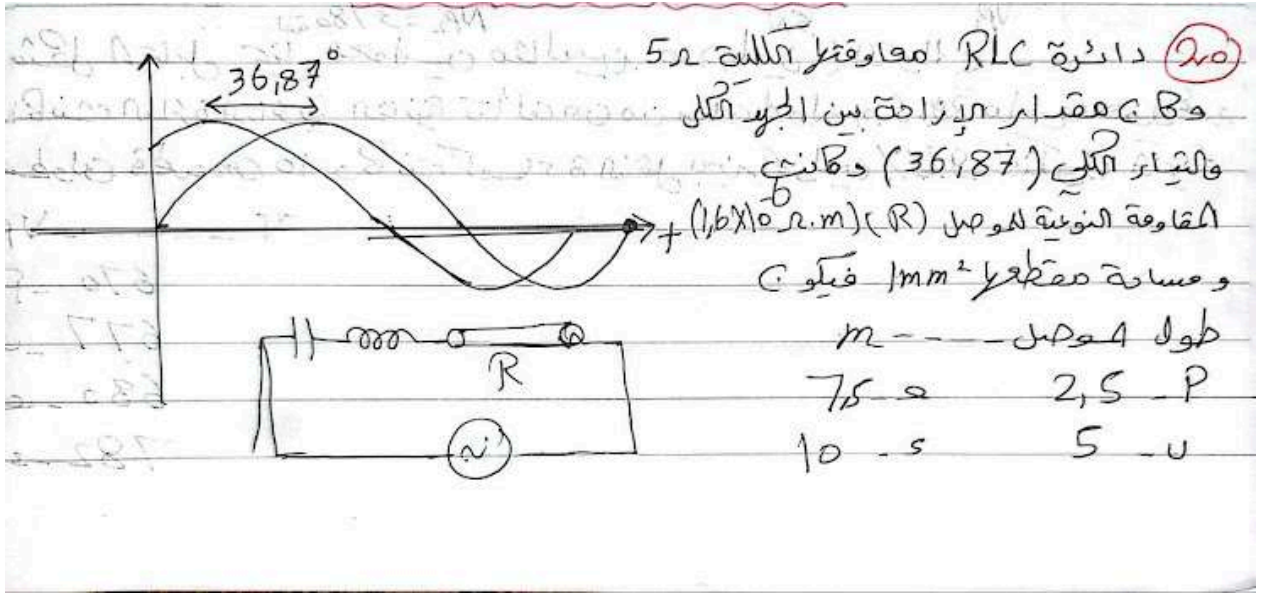 20 دائرة RLC معاوقتها الكلية 5Ω
وكان مقدار الإزاحة بين الجهد الكلى
والتيار الكلي (36,87) وكانت
المقاومة النوعية لموصل (R) (1,6X10⁻⁶ Ω.m)
ومساحة مقطعها 1mm² فيكون
طول الموصل ---- m
P - 2,5 ه - 7,5
ب - 5 د - 10
36,87°
t
R